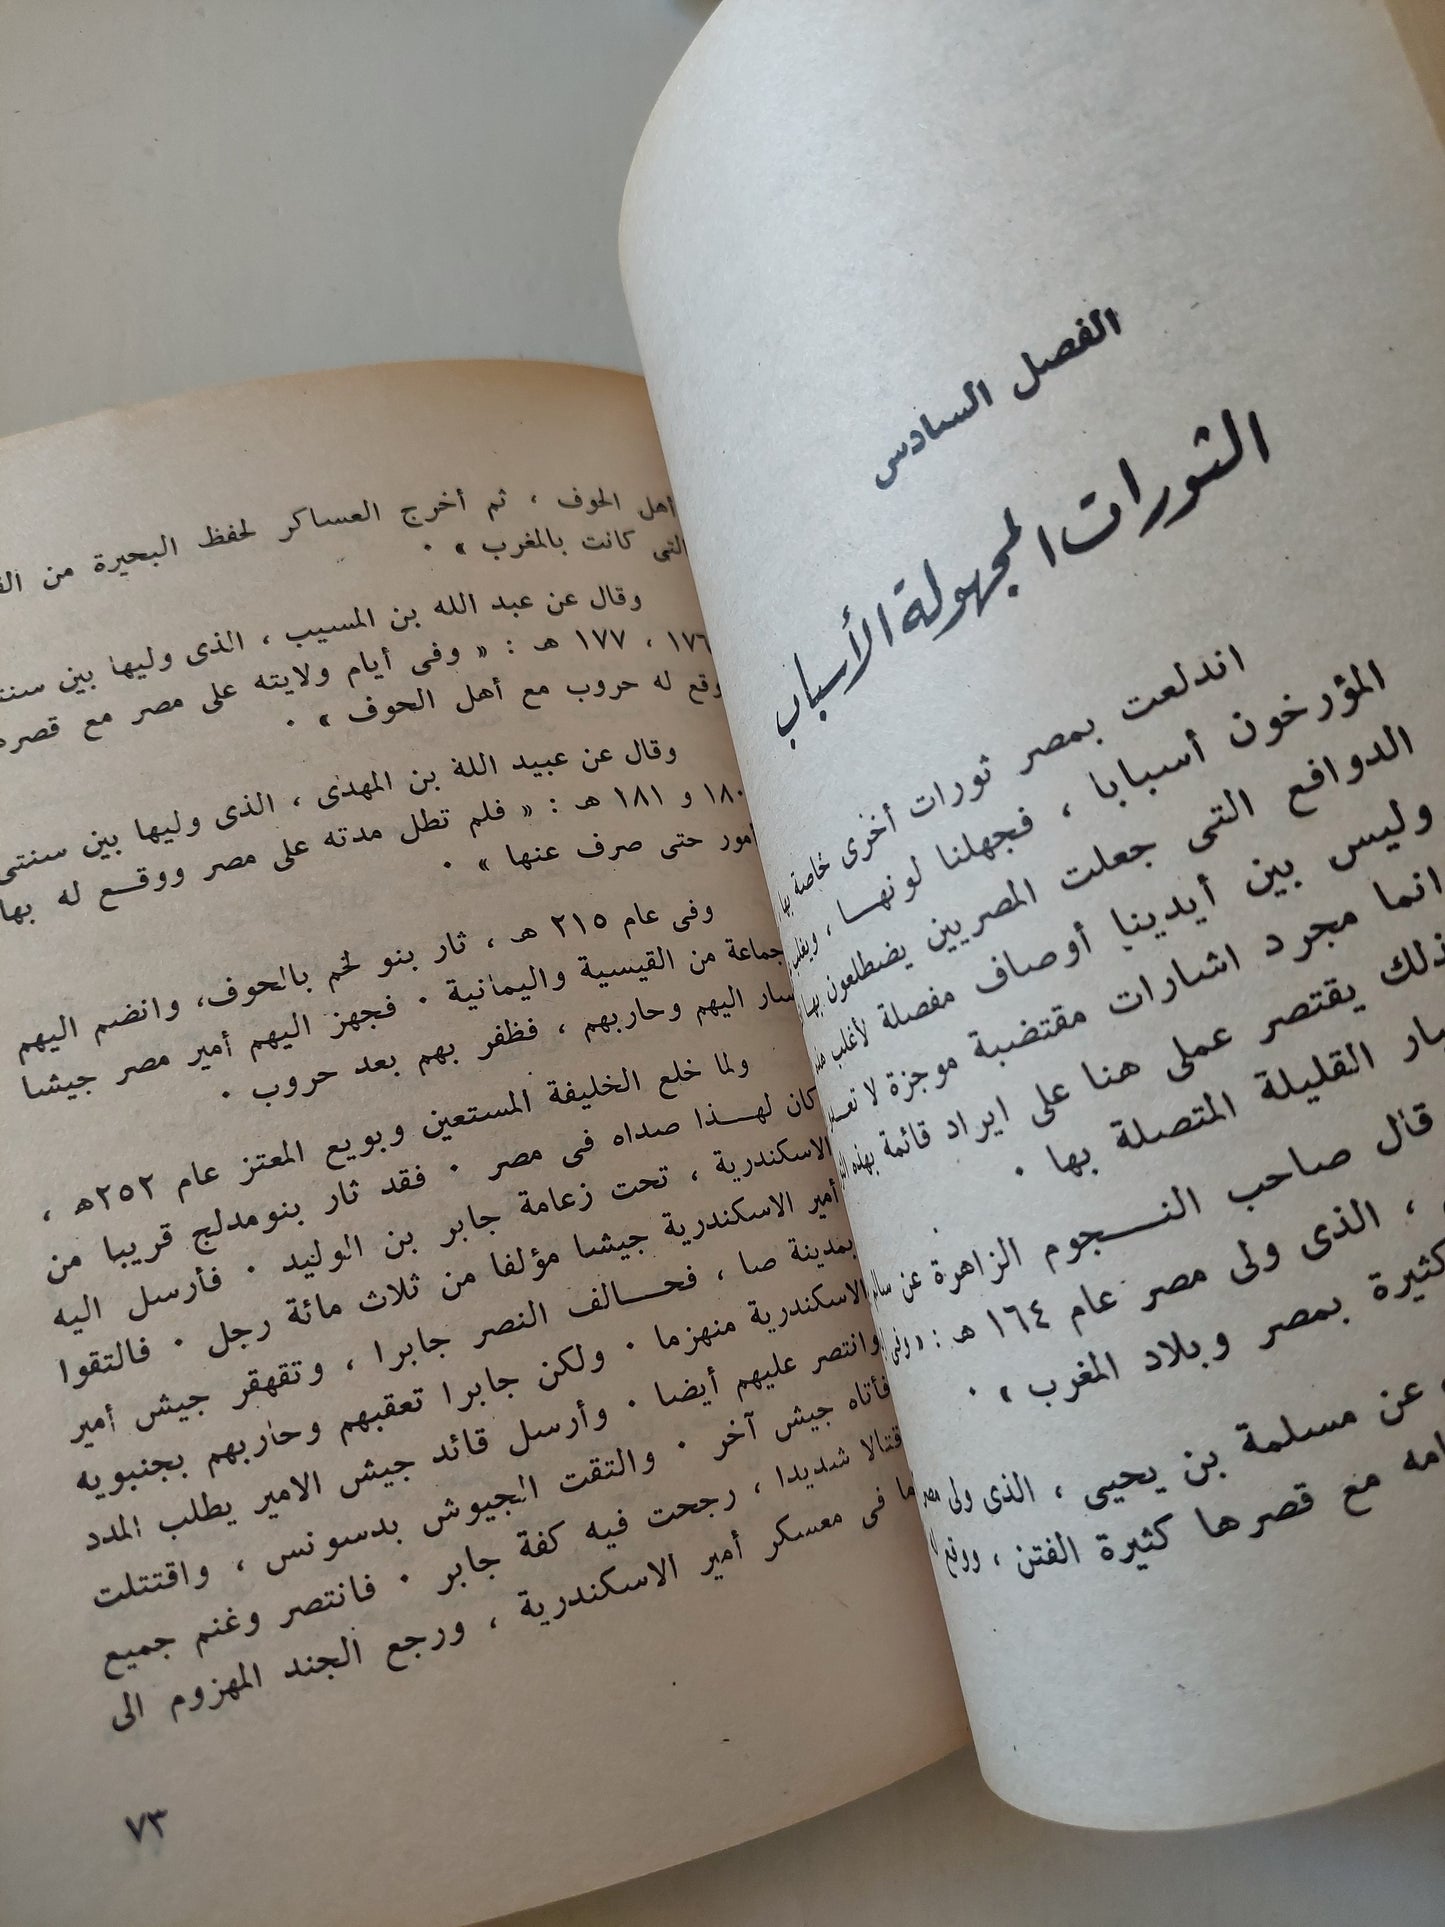 الفصل السادس
الثورات المجهولة الأسباب
اندلعت بمصر ثورات أخرى خاصة بها
المؤرخون أسبابا ، فجهلنا لونهـا ،
الدوافع التى جعلت المصريين يضطلعون بها
وليس بين أيدينا أوصاف مفصلة لأغلب
انما مجرد اشارات مقتضبة موجزة لا
ذلك يقتصر عملى هنا على ايراد قائمة بهذه
القليلة المتصلة بها ٠
قال صاحب النـــجوم الزاهرة عن
، الذى ولى مصر عام ١٦٤ هـ : « وفى
كثيرة بمصر وبلاد المغرب » ٠
عن مسلمة بن يحيى ، الذى ولى مصر
مع قصرها كثيرة الفتن ، ووقع
اهل الحوف ، ثم أخرج العساكر لحفظ البحيرة من
التى كانت بالمغرب » ٠
وقال عن عبد الله بن المسيب ، الذى وليها بين
١٧٦ ، ١٧٧ هـ : « وفى أيام ولايته على مصر مع
وقع له حروب مع أهل الحوف » ٠
وقال عن عبيد الله بن المهدى ، الذى وليها بين سنتى
١٨٠ و ١٨١ هـ : « فلم تطل مدته على مصر ووقـع له بها
امور حتى صرف عنها » ٠
وفى عام ٢١٥ هـ ، ثار بنو لخم بالحوف، وانضم اليهم
جماعة من القيسية واليمانية ٠ فجهز اليهم أمير مصر جيشا
سار اليهم وحاربهم ، فظفر بهم بعد حروب ٠
ولما خلع الخليفة المستعين وبويع المعتز عام ٢٥٢هـ ،
كان لهـــذا صداه فى مصر ٠ فقد ثار بنومدلج قريبا من
الاسكندرية ، تحت زعامة جابر بن الوليد ٠ فأرسل اليه
أمير الاسكندرية جيشا مؤلفا من ثلاث مائة رجل ٠ فالتقوا
بمدينة صا ، فحـــالف النصر جابرا ، وتقهقر جيش أمير
الاسكندرية منهزما ٠ ولكن جابرا تعقبهم وحاربهم بجنبويه
وانتصر عليهم أيضا ٠ وأرسل قائد جيش الامير يطلب المدد
فأتاه جيش آخر ٠ والتقت الجيوش بدسونس ، واقتتلت
قتالا شديدا ، رجحت فيه كفة جابر ٠ فانتصر وغنم جميع
ما فى معسكر أمير الاسكندرية ، ورجع الجند المهزوم الى
٧٣